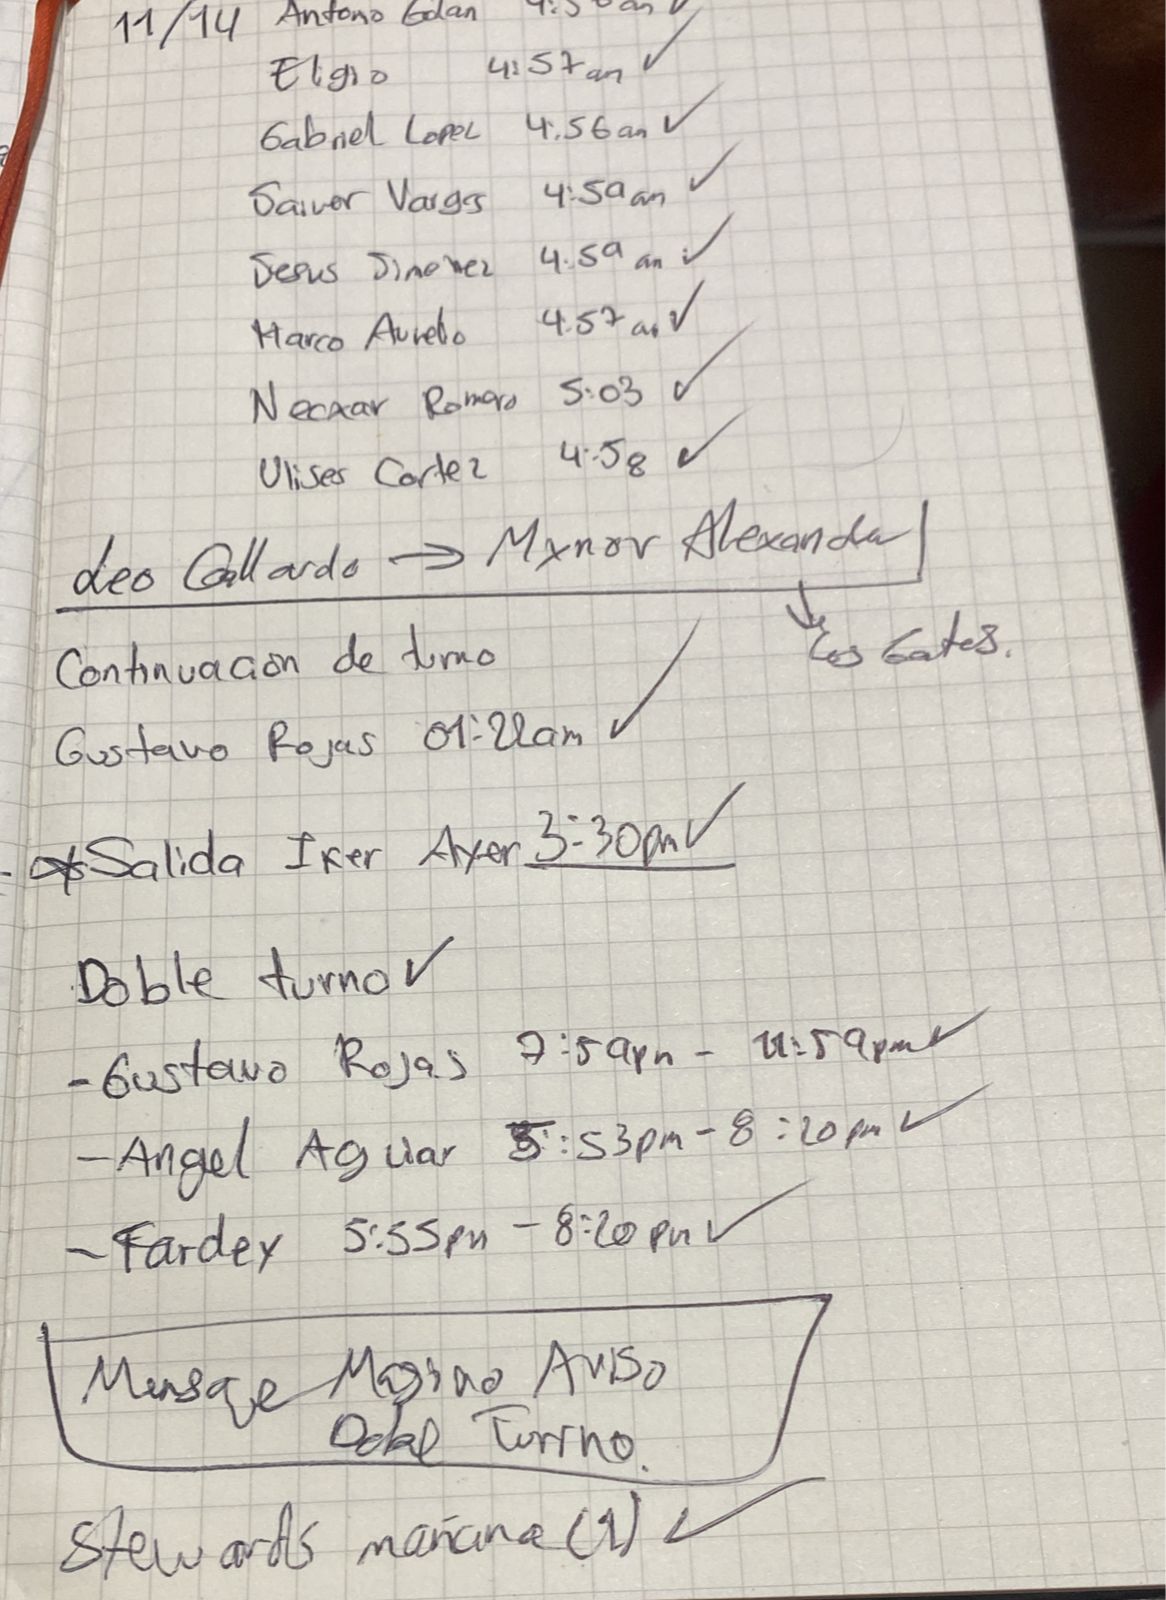 11/14 Antonio
Eligio 4:57am ✓
Gabriel Lopez 4:56am ✓
Vargas 4:59am ✓
Jesus Jimenez 4:59 am ✓
Marco Aurelio 4:57am ✓
Necxar Romero 5:03 ✓
Ulises Cortez 4:58 ✓
Leo Gallardo → Mynor Alexander
↓
Los Gatos.
Continuacion de turno
Gustavo Rojas 01:22am ✓
*Salida Iker Ayer 3:30pm ✓
Doble turno ✓
-Gustavo Rojas 7:59pm - 11:59pm ✓
-Angel Aguiar 5:53pm - 8:20pm ✓
-Fardey 5:55pm - 8:20pm ✓
Mensaje Aviso
Turrno.
Stewards mañana (1) ✓